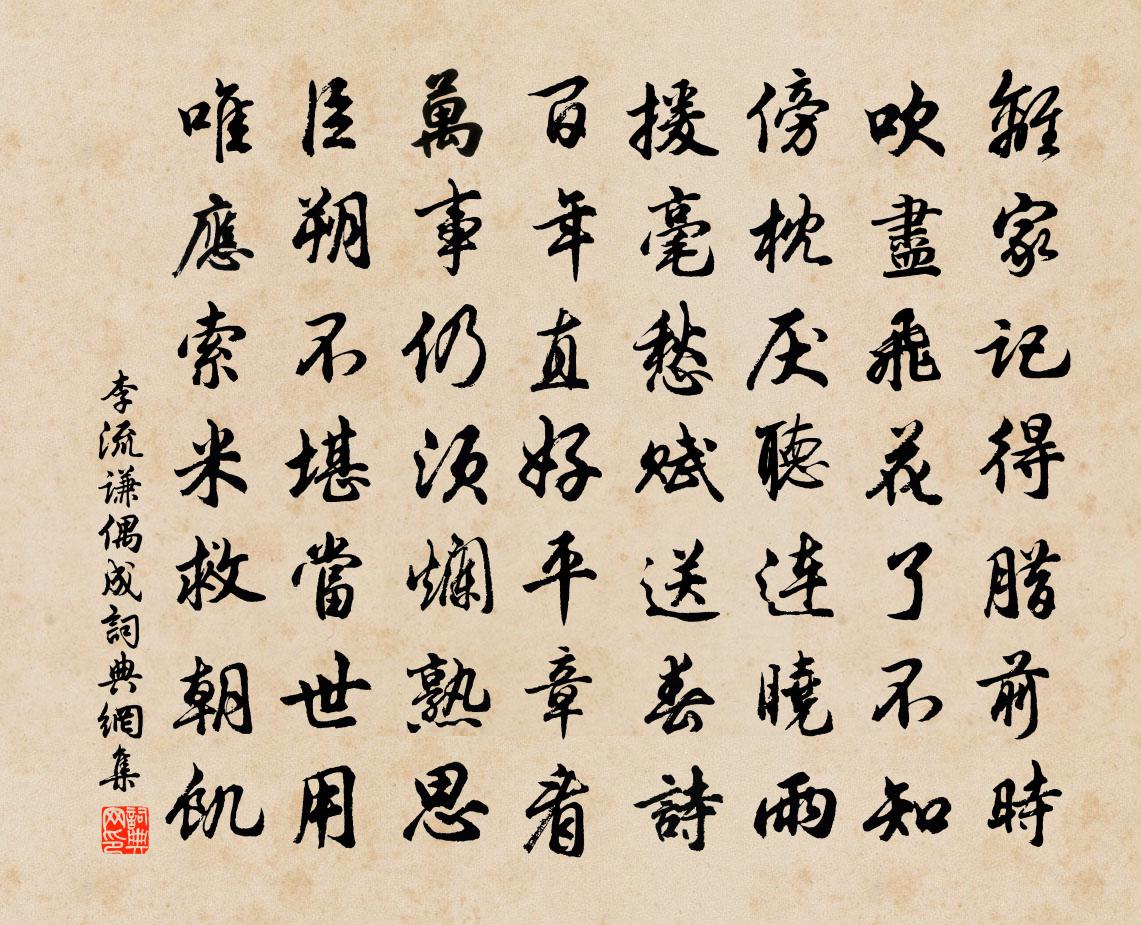 離家記得腊前時
吹盡飛花了不知
傍枕厌聽連曉雨
援毫愁賦送春詩
百年直好平章看
萬事仍須爛熟思
臣朔不堪當世用
唯應索米救朝飢
李流谦偶成詞典網集
詞典网印